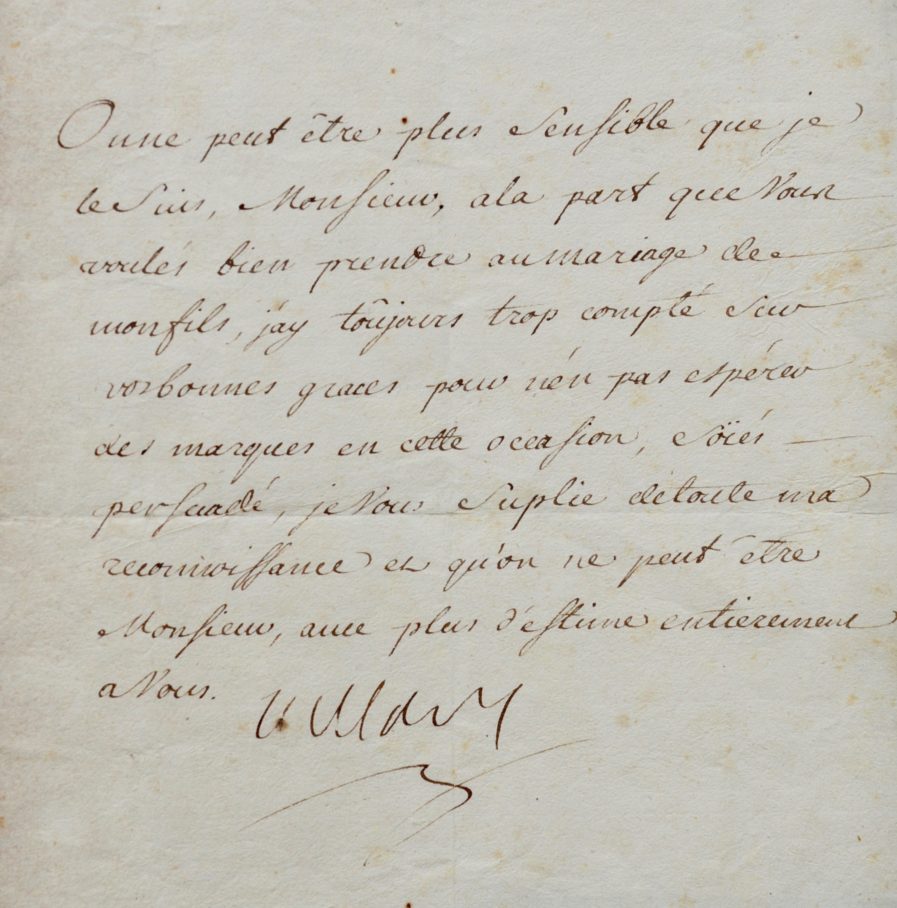 On ne peut être plus sensible que je
le suis, Monsieur, a la part que Vous
voulés bien prendre au mariage de
mon fils, j'ay toûjours trop compté sur
vos bonnes graces pour n'én pas espérer
des marques en cette occasion, soïés
persuadé, je Vous suplie de toute ma
reconnoissance et qu'on ne peut être
Monsieur, avec plus d'estime entierement
a Vous.
Villars